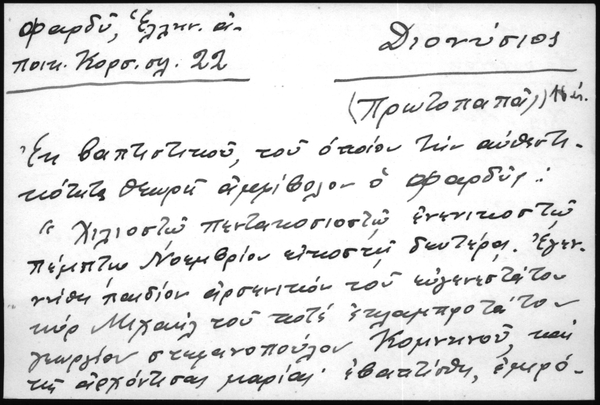 Φαρδῦ, Ἑλλην. ἀ-
ποικ. Κορσ. σλ. 22
Διονύσιος
(Πρωτοπαπᾶς)
Ἐκ βαπτιστικοῦ, τοῦ ὁποίου τὴν αὐθεντι-
κότητα θεωρεῖ ἀμφίβολον ὁ Φαρδύς:
"Χιλιοστῷ πεντακοσιοστῷ ἐνενικοστῷ
πέμπτῳ Νοεμβρίου εἰκοστῇ δευτέρᾳ. Ἐγεν-
νήθη παιδίον ἀρσενικόν τοῦ εὐγενεστάτου
κὺρ Μιχαὴλ τοῦ ποτέ ἐκλαμπροτάτου
γεωργίου στεφανοπούλου Κομνηνοῦ, καὶ
τῆς ἀρχόντισας μαρίας· ἐβαπτίσθη, ἐμπρό-